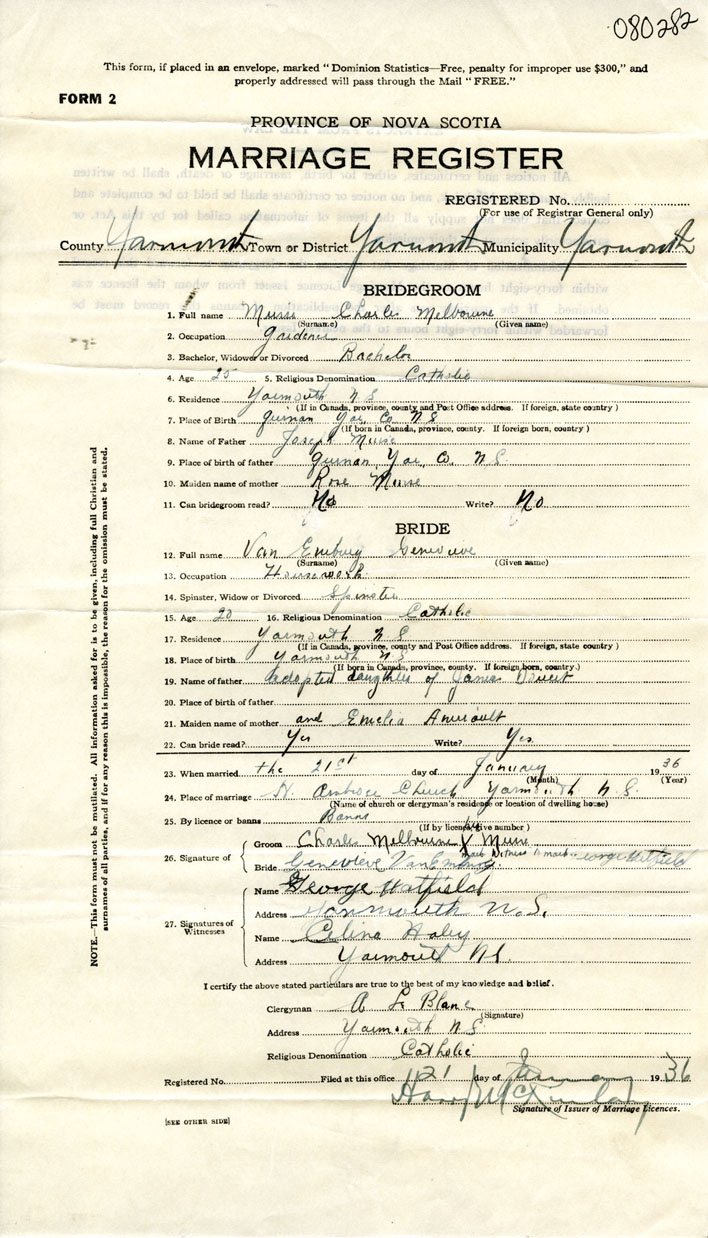 080282
This form, if placed in an envelope, marked “Dominion Statistics—Free, penalty for improper use $300,” and
properly addressed will pass through the Mail “FREE.”
FORM 2
PROVINCE OF NOVA SCOTIA
MARRIAGE REGISTER
REGISTERED No.
(For use of Registrar General only)
County Yarmouth Town or District Yarmouth Municipality Yarmouth
BRIDEGROOM
1. Full name Muise Charles Melbourne
(Surname) (Given name)
2. Occupation gardener
3. Bachelor, Widower or Divorced Bachelor
4. Age 25 5. Religious Denomination Catholic
6. Residence Yarmouth N S
(If in Canada, province, county and Post Office address. If foreign, state country)
7. Place of Birth Quinan Yar Co N S
(If born in Canada, province, county. If foreign born, country)
8. Name of Father Joseph Muise
9. Place of birth of father Quinan Yar Co. N S
10. Maiden name of mother Rose Muise
11. Can bridegroom read? No Write? No
BRIDE
12. Full name Van Emburg Genevieve
(Surname) (Given name)
13. Occupation Housework
14. Spinster, Widow or Divorced Spinster
15. Age 20 16. Religious Denomination Catholic
17. Residence Yarmouth N S
(If in Canada, province, county and Post Office address. If foreign, state country)
18. Place of birth Yarmouth N S
(If born in Canada, province, county. If foreign born, country.)
19. Name of father adopted daughter of James Doucet
20. Place of birth of father
21. Maiden name of mother and Emelia Amirault
22. Can bride read? Yes Write? Yes
23. When married the 21st day of January 1936
(Month) (Year)
24. Place of marriage St. Ambrose Church Yarmouth N. S.
(Name of church or clergyman's residence or location of dwelling house)
25. By licence or banns Banns
(If by licence, give number)
26. Signature of
Groom Charles Melbourne X Muise
his
mark Witness to mark George Hatfield
Bride Genevieve VanEmburg
27. Signatures of Witnesses
Name George Hatfield
Address Yarmouth N.S.
Name Celina Haley
Address Yarmouth N.S.
I certify the above stated particulars are true to the best of my knowledge and belief.
Clergyman A Le Blanc
(Signature)
Address Yarmouth N S
Religious Denomination Catholic
Registered No. Filed at this office 21 day of January 1936
Signature of Issuer of Marriage Licences.
[SEE OTHER SIDE]
NOTE.—This form must not be mutilated. All information asked for is to be given, including full Christian and
surnames of all parties, and if for any reason this is impossible, the reason for the omission must be stated.